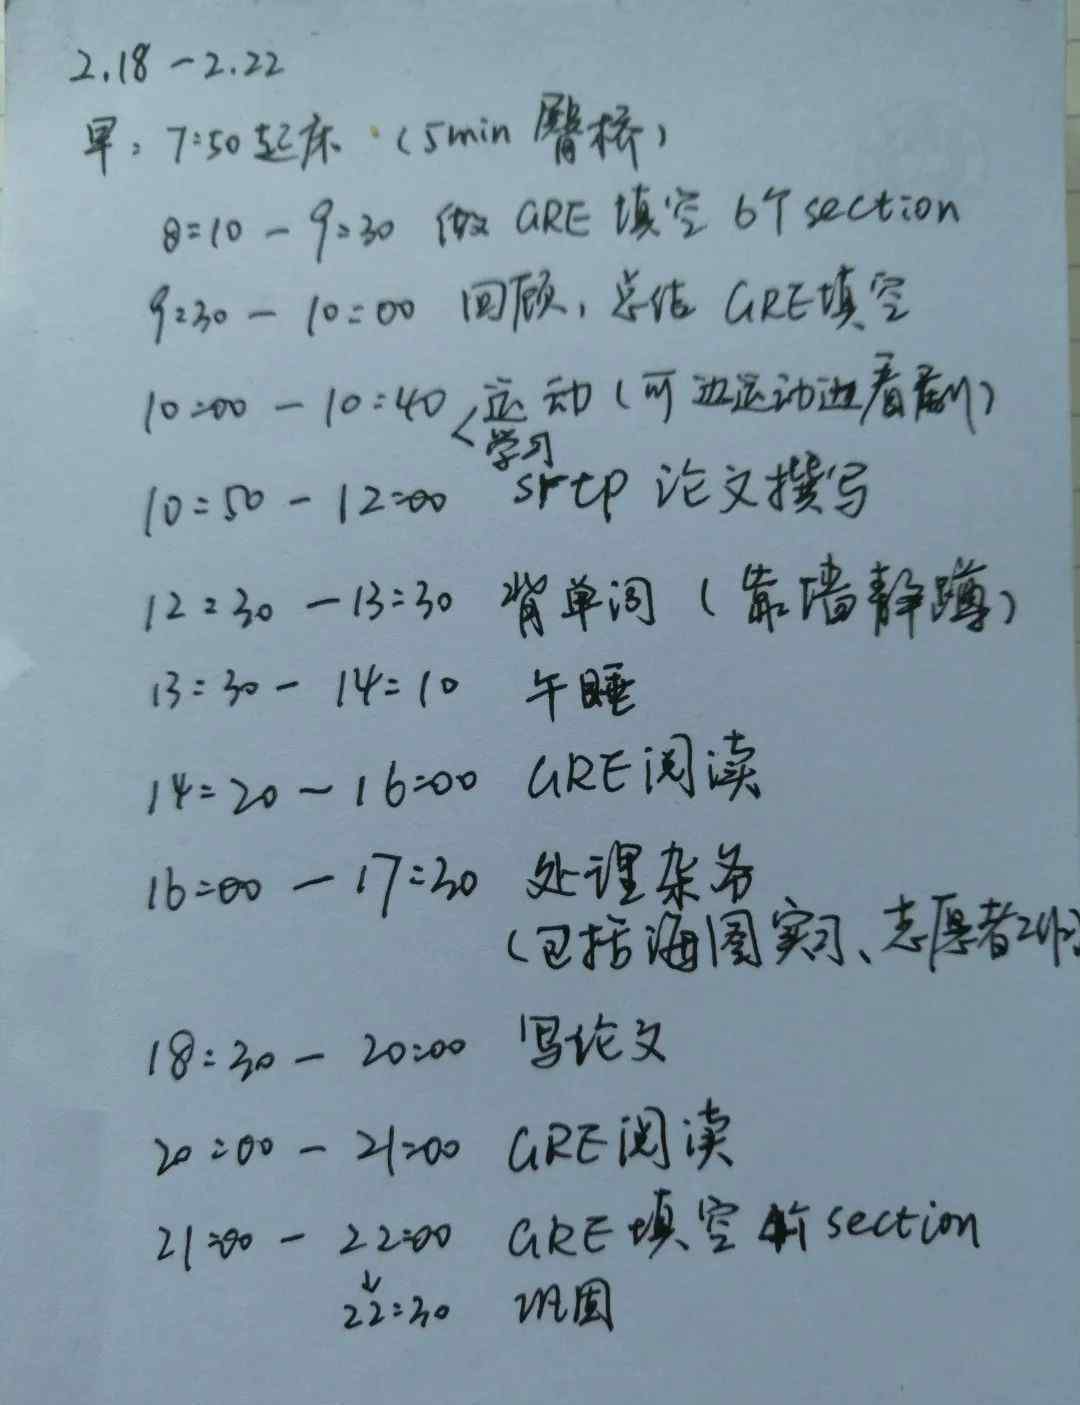 2.18 - 2.22
早: 7:50 起床 (5min 臀桥)
8:10 - 9:30 做 GRE 填空 6个 section
9:30 - 10:00 回顾, 总结 GRE填空
10:00 - 10:40 运动 (可边运动边看剧)
学习
10:50 - 12:00 srtp 论文撰写
12:30 - 13:30 背单词 (靠墙静蹲)
13:30 - 14:10 午睡
14:20 - 16:00 GRE阅读
16:00 - 17:30 处理杂务
(包括海图实习、志愿者
18:30 - 20:00 写论文
20:00 - 21:00 GRE阅读
21:00 - 22:00 GRE 填空 4个 section
↓
22:30 巩固